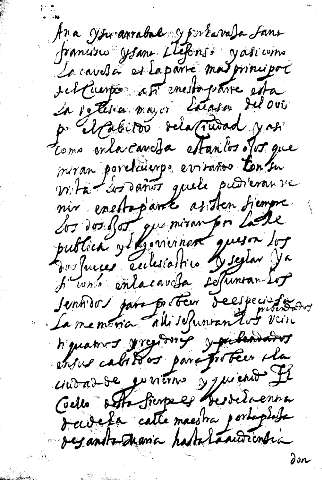 Ana y su arrabal y por ta casa sant
francisco y sant Ilefonso y asi como
la caveça es la parte mas principal
del cuerpo asi en esta parte esta
La iglesia mayor la casa del obis
po el Cabildo de la Ciudad y asi
como en la caveça estan los ojos que
miran por el cuerpo evitando con su
vista los daños que le pudieran ve
nir en esta parte asisten siempre
Los dos ojos que miran por la Re
publica y la goviernan que son los
dos jueces eclesiastico y seglar ya
si como en la caveça se juntan los
sentidos para prober de especies a
la memoria alli se juntan los vein
prebendados
tiquatros y regidores y prebendados
en sus cabildos para prober a la
ciudad de govierno y quietud El
Cuello desta sierpe es desde la entra
da de la calle maestra por la plaça
de santa Maria hasta la audiencia
don